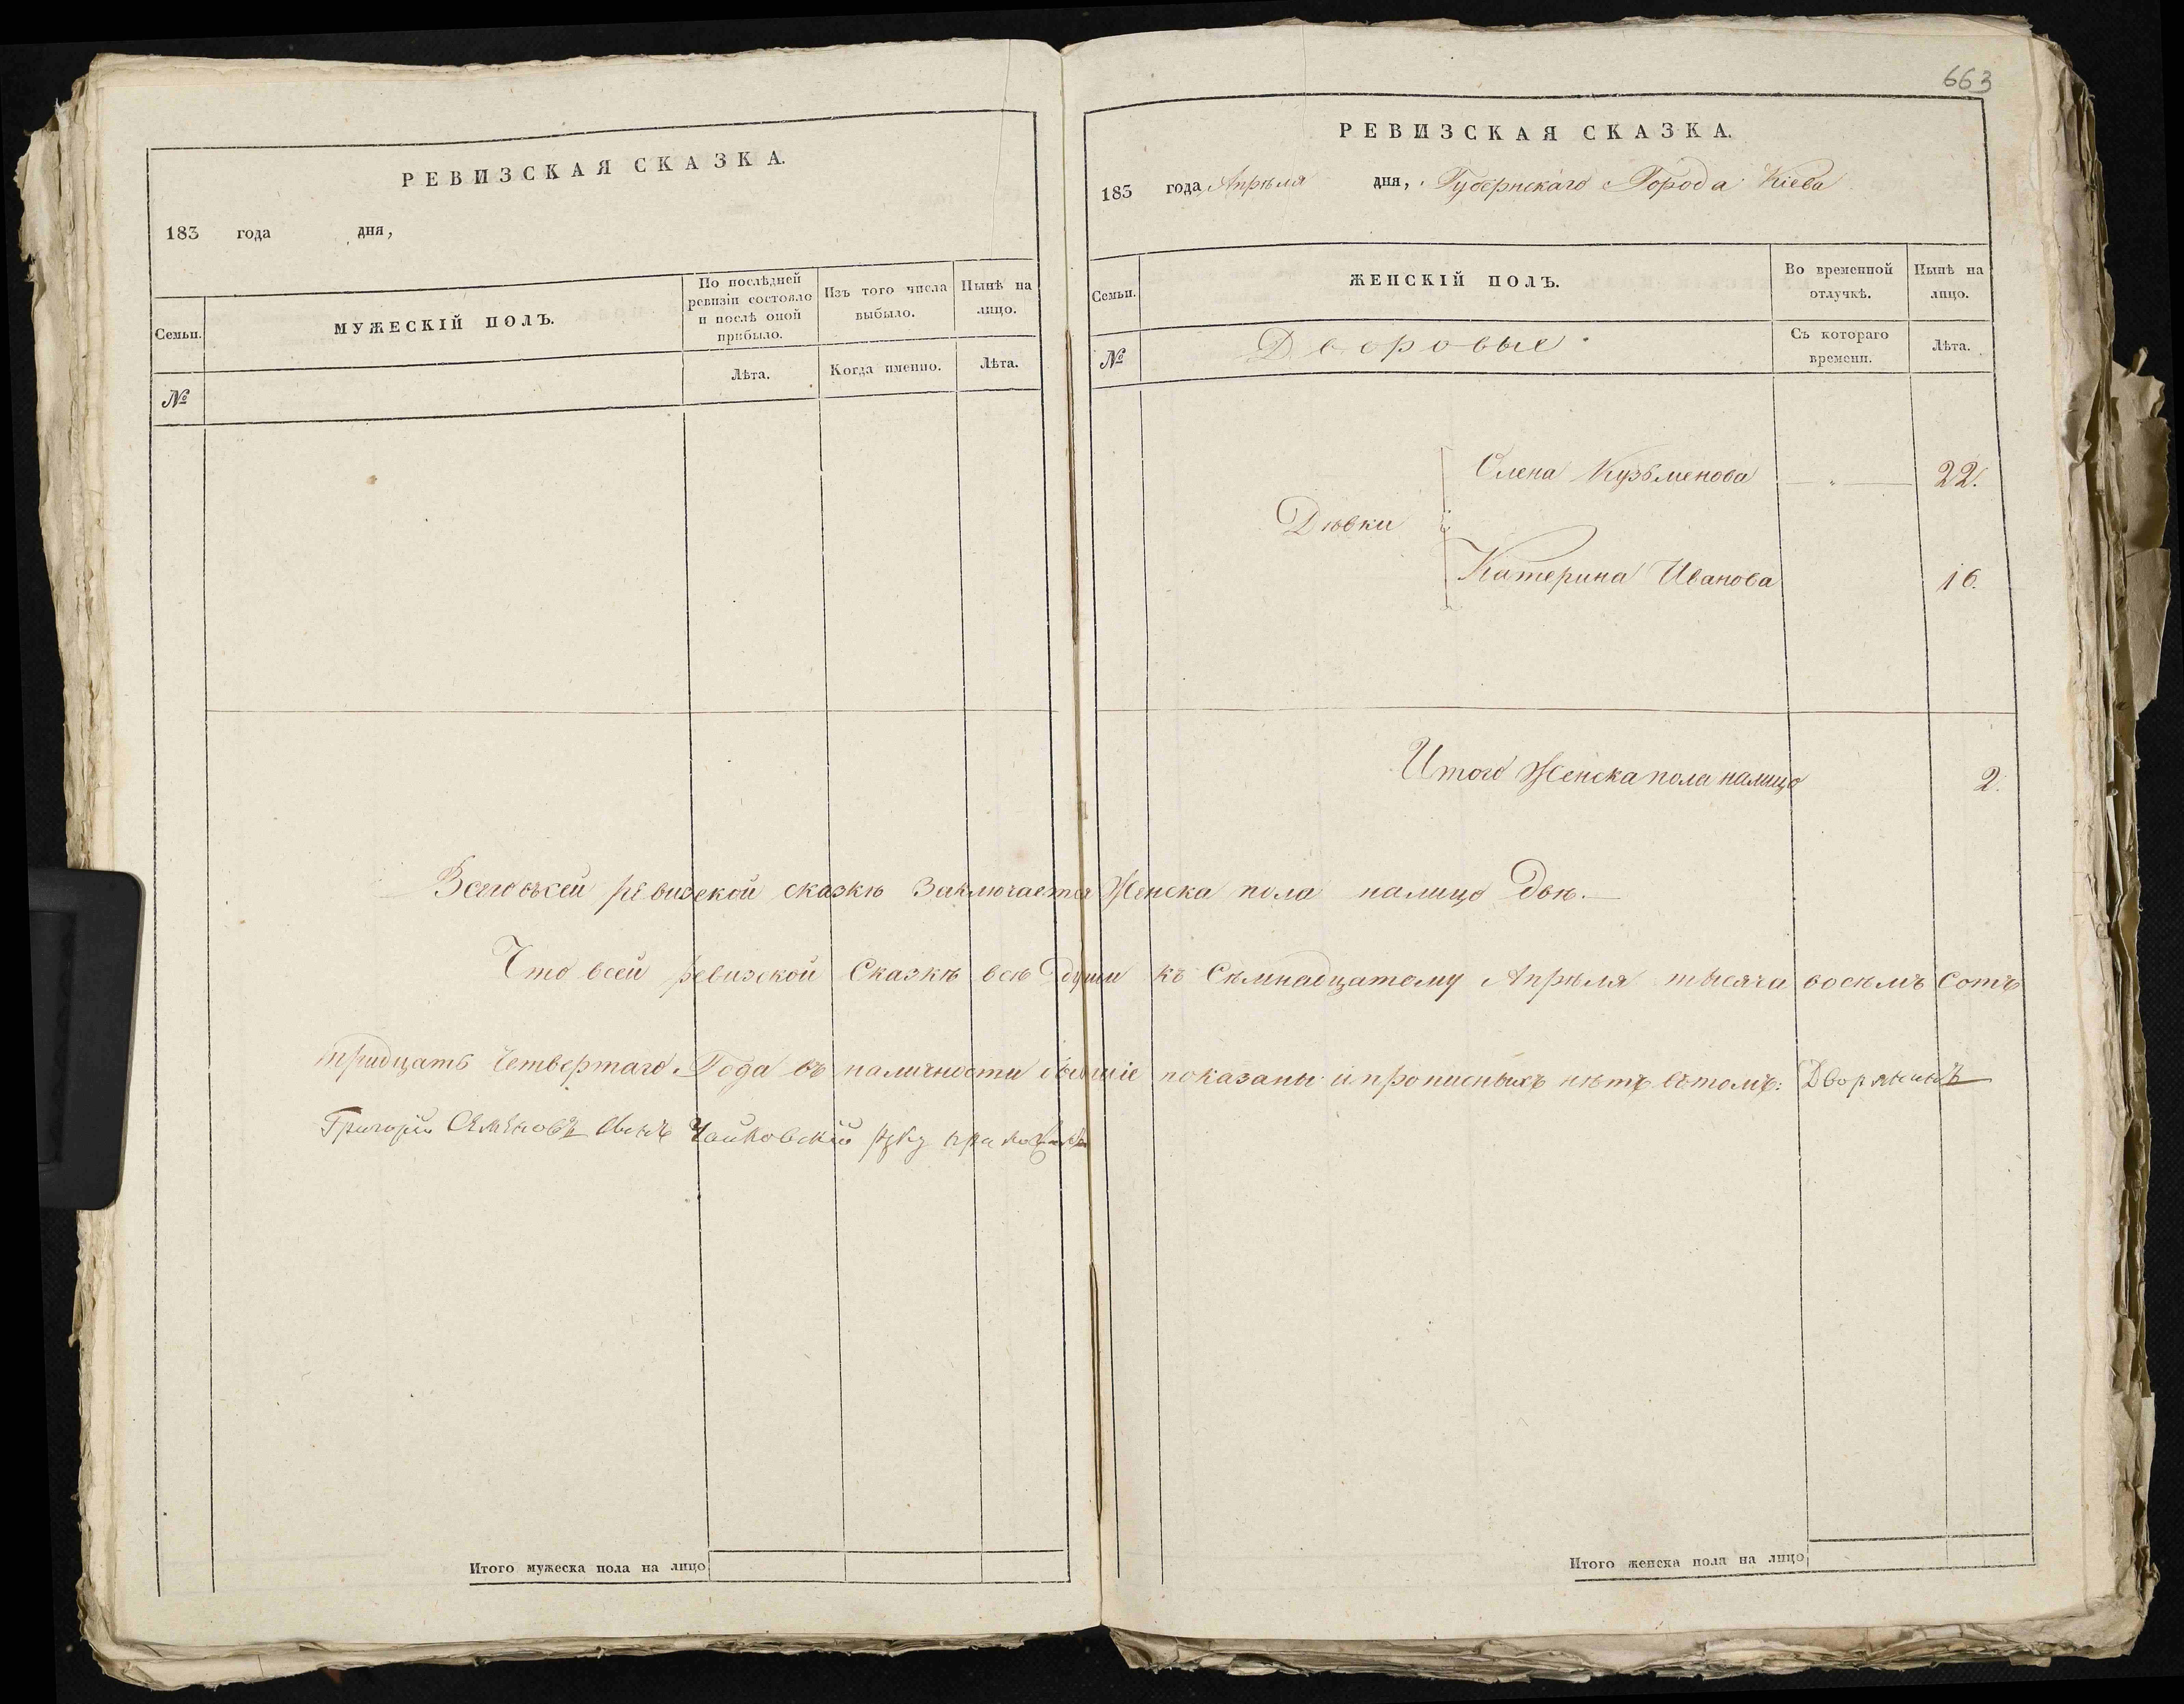 663
РЕВИЗСКАЯ СКАЗКА.
183 года дня,
Семьи.
МУЖЕСКІЙ ПОЛЪ.
По послѣдней
ревизіи состояло
и послѣ оной
прибыло.
Изъ того числа
выбыло.
Нынѣ на
лицо.
№
Лѣта.
Когда именно.
Лѣта.
РЕВИЗСКАЯ СКАЗКА.
183 года Апрѣля дня, Губернскаго Города Кіева
Семьи.
ЖЕНСКІЙ ПОЛЪ.
Во временной
отлучкѣ.
Нынѣ на
лицо.
№
Дворовые
Съ котораго
времени.
Лѣта.
Олена Кузьменова — „ — 22.
Дѣвки
Катерина Иванова 16.
Итого Женска пола налицо 2.
Всего въсей ревизской сказкѣ Заключается Женска пола налицо Двѣ.—
Что всей ревизской Сказкѣ всѣ Души къ Сѣмнадцатому Апрѣля тысяча восѣмъ Сотъ
тридцать Четвертаго Года въ наличности бывшіе показаны ипрописныхъ нѣтъ вътомъ: Дворянинъ
Григорій Семѣновъ Сынъ Чайковскій руку приложилъ
Итого мужеска пола на лицо
Итого женска пола на лицо